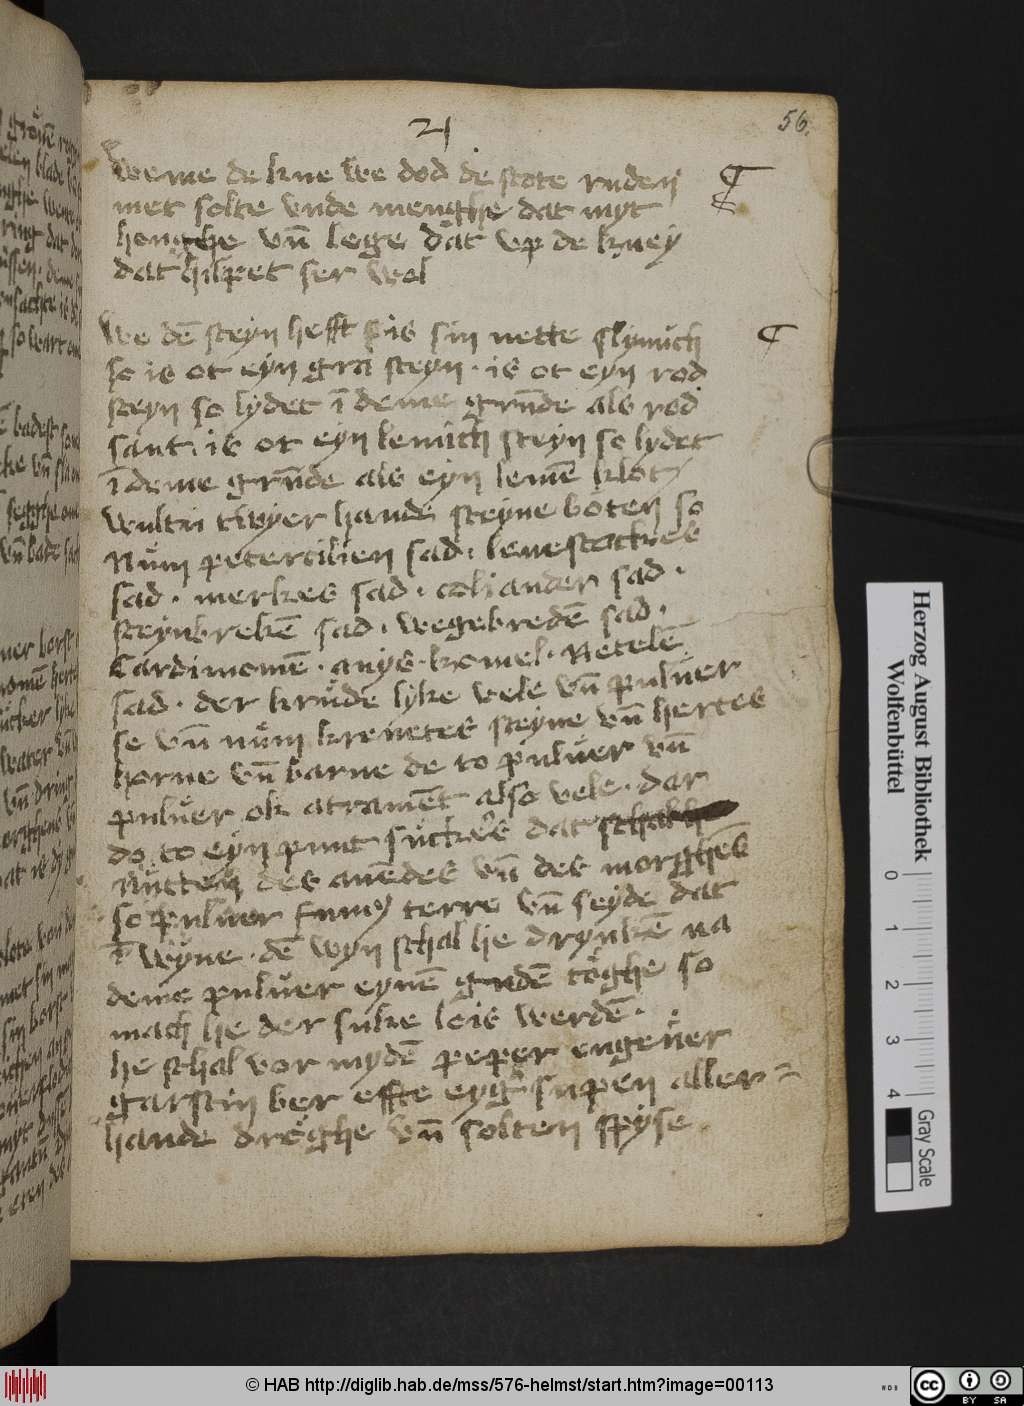 21
56.
Weme de kne we dod de stote ruden
met solte vnde menghe dat myt
honghe vn̄ lege dat vp de kney
dat hilpet ser wol
We dē steyn hefft pis sin nette slymich
so is ot eyn gra steyn · is ot eyn rod
steyn so lydet ī deme grūde als rod
sant · is ot eyn lemich steyn so lydet
ī deme grūde als eyn lemē klot
wultu twyer hande steyne boten so
Num petercilien sad · leuestockes
sad · merkes sad · coliander sad ·
steynbrekē sad · wegebredē sad ·
Cardimomē · anys · komel · Netelē
sad · der krude lyke vele vn̄ puluer
se vn̄ num kreuetes steyne vn̄ hertes
horne vn̄ barne de to puluer vn̄
puluer ok atramēt also vele · dar
do to eyn punt suckers dat
Nutten des auēdes vn̄ des morghēs
so puluer fumꝯ terre vn̄ seyde dat
ī wyne · dē wyn schal he drynkē na
deme puluer eynē gudē toghe so
mach he der suke lois werdē ·
he schal vor mydē peper engeuer
garstin ber effte eyg͛ supen aller =
hande droghe vn̄ solten spyse
Herzog August Bibliothek
Wolfenbüttel
0 1 2 3 4
Gray Scale
© HAB http://diglib.hab.de/mss/576-helmst/start.htm?image=00113
cc BY SA